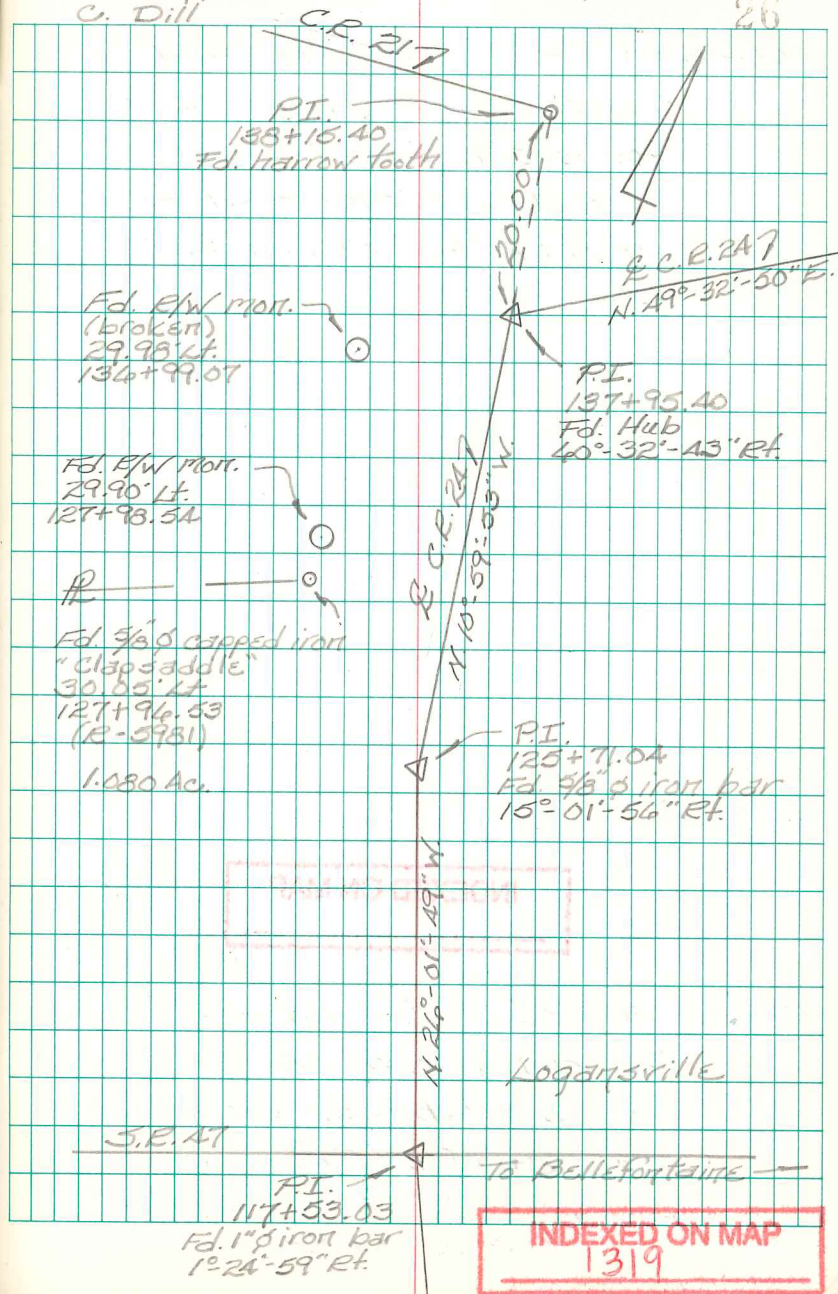 C. Dill
26
C.R. 217
P.I.
138+15.40
Fd. harrow tooth
20.00'
℄ C.R. 247
N. 49°-32'-50" E.
Fd. R/W mon.
(broken)
29.98' Lt.
136+99.07
P.I.
137+95.40
Fd. Hub
60°-32'-43" Rt.
Fd. R/W mon.
29.90' Lt.
127+98.54
℄ C.R. 247
N. 10°-59'-53" W.
PL
Fd. 5/8" ø capped iron
"Clapsaddle"
30.05' Lt
127+96.53
(R-5981)
1.080 Ac.
P.I.
125+71.04
Fd. 5/8" ø iron bar
15°-01'-56" Rt.
INDEXED ON MAP
N. 26°-01'-49" W.
Logansville
S.R. 47
To Bellefontaine
P.I.
117+53.03
Fd. 1" ø iron bar
1°-24'-59" Rt.
INDEXED ON MAP
1319